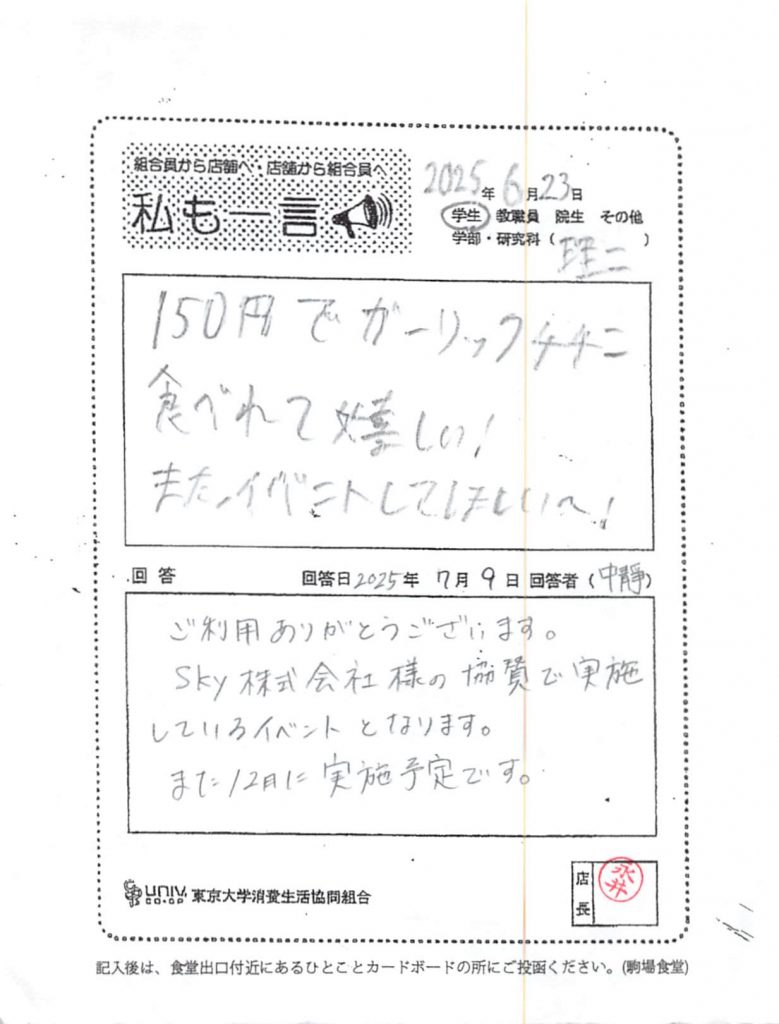 組合員から店舗へ・店舗から組合員へ
私も一言
2025年6月23日
学生 教職員 院生 その他
学部・研究科( )
理二
150円でガーリックチキン
食べれて嬉しい!
また、イベントしてほしい〜!
回答 回答日2025年 7月 9日 回答者(中静)
ご利用ありがとうございます。
Sky株式会社様の協賛で実施
しているイベントとなります。
また12月に実施予定です。
univ. co-op 東京大学消費生活協同組合
店長
永井
記入後は、食堂出口付近にあるひとことカードボードの所にご投函ください。(駒場食堂)